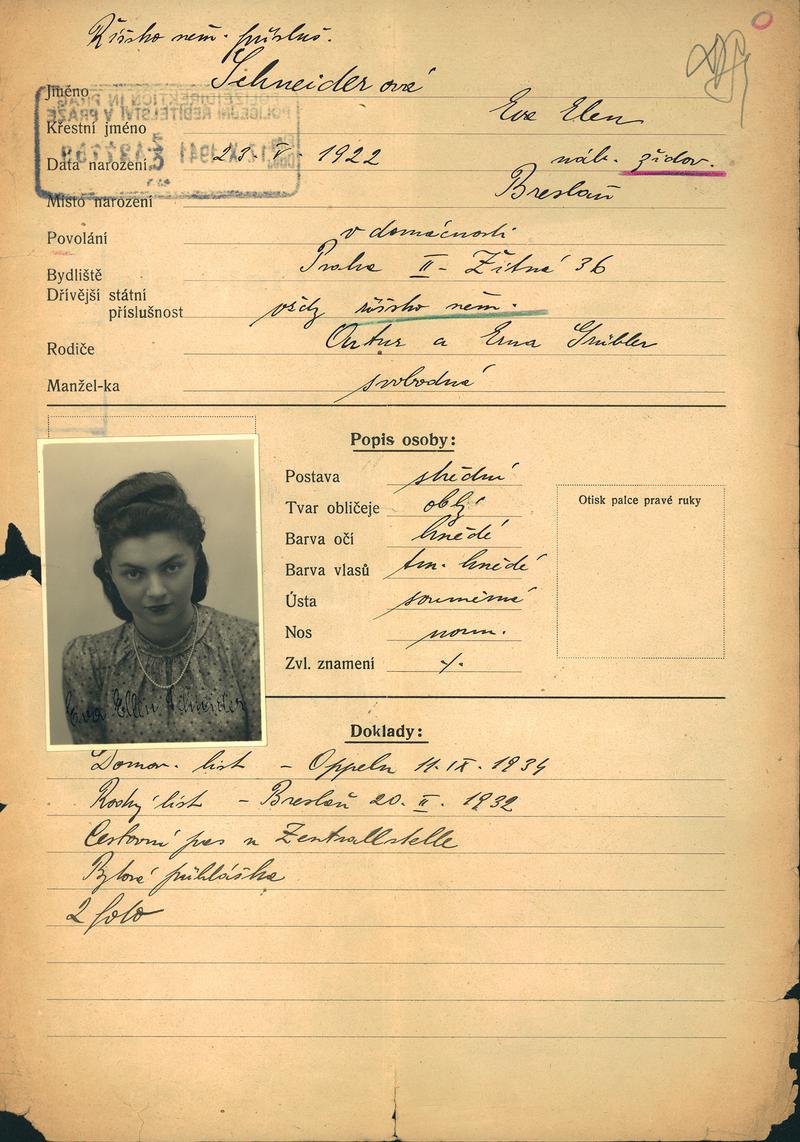 Říšsko něm. přísluš.
Jméno Schneiderová
Křestní jméno Eva Elen
Data narození 23. V. 1922 náb. židov.
Místo narození Breslau
Povolání v domácnosti
Bydliště Praha II - Žitná 36
Dřívější státní
příslušnost vždy říšsko něm.
Rodiče Artur a Erna Grübler
Manžel-ka svobodná
POLIZEIDIREKTION IN PRAG
POLICEJNÍ ŘEDITELSTVÍ V PRAZE
1941
Popis osoby:
Postava střední
Tvar obličeje oblý
Barva očí hnědé
Barva vlasů tm. hnědé
Ústa souměrná
Nos norm.
Zvl. znamení -/.
Otisk palce pravé ruky
Eva Ellen Schneider
Doklady:
Domov. list - Oppeln 11. IX. 1934
Rodný list - Breslau 20. II. 1932
Cestovní pas u Zentrallstelle
Bytová přihláška
2 foto